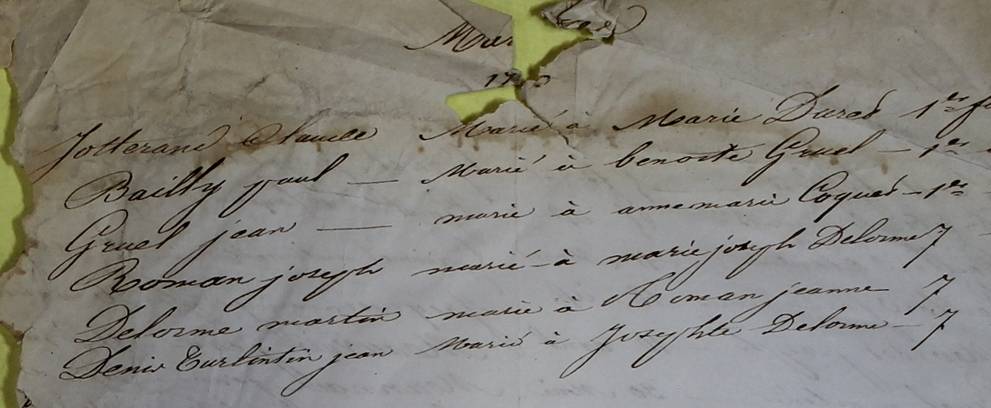 Jotterand Claude Marié à Marie Durad 1er
Bailly paul — Marié à benoite Gruel — 1er
Gruel jean — marié à annemarie Coquad — 1er
Roman joseph marié à marie joseph Delorme 7
Delorme martin marié à Roman jeanne 7
Denis Turlintin jean Marié à Josephte Delorme — 7